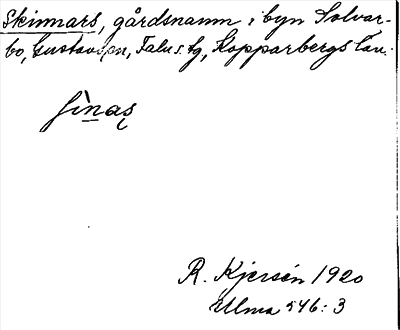 Skinnars, gårdsnamn i byn Solvar-
bo, Gustavs sn, Falu s. tg, Kopparbergs län.
R. Kjersén 1920
Ulma 546:3